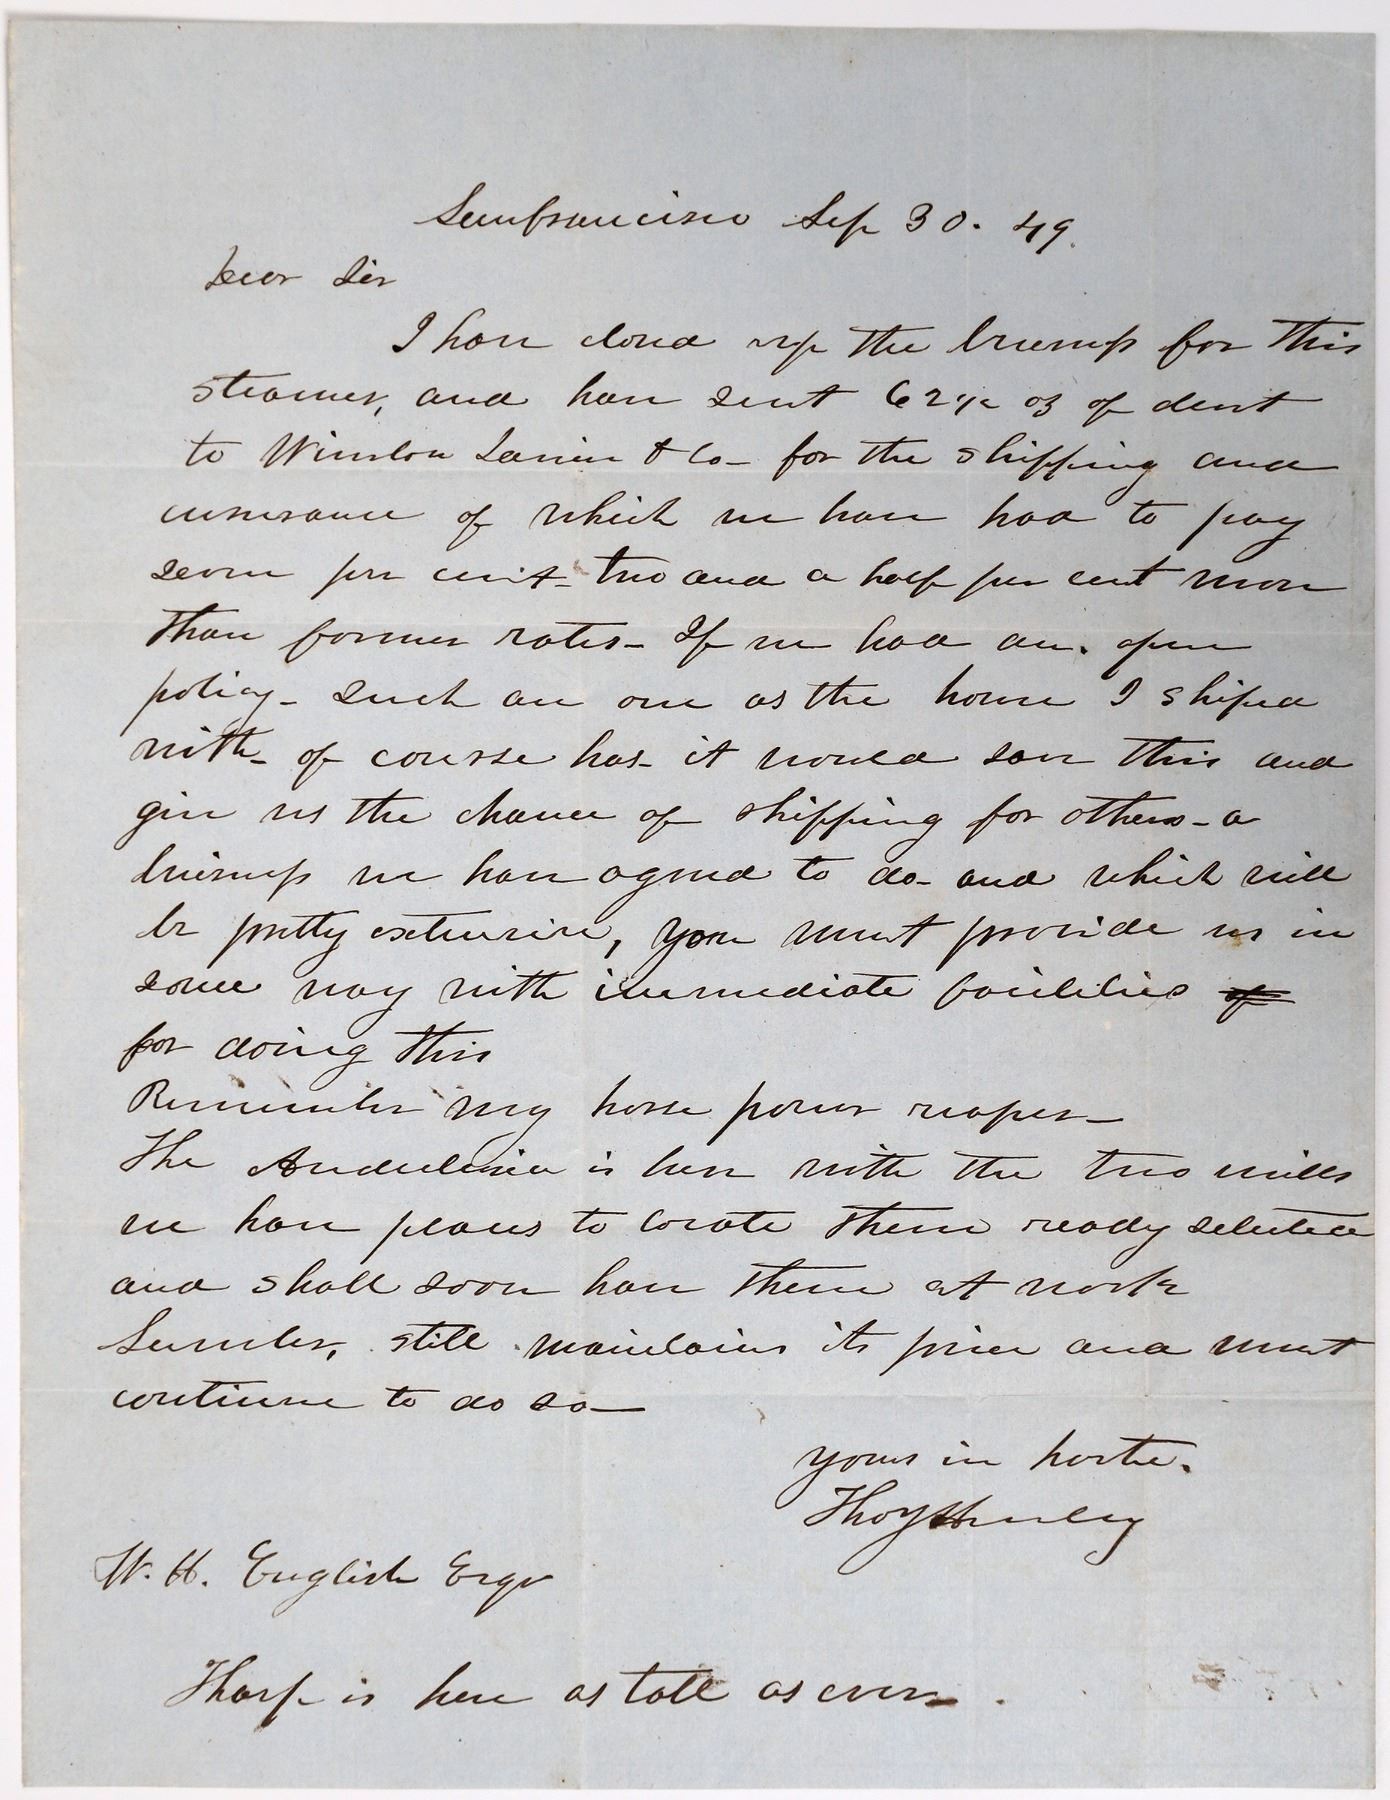 Sanfrancisco Sep 30. 49.
Dear Sir
I have closed up the business for this
steamer, and have sent 62½ oz of dust
to Winslow Lanier & Co - for the shipping and
insurance of which we have had to pay
seven per cent - two and a half per cent more
than former rates - If we had an open
policy - such an one as the house I shiped
with - of course has - it would save this and
give us the chance of shipping for others - a
business we have agreed to do - and which will
be pretty extensive, you must provide us in
some way with immediate facilities of
for doing this
Remember my horse power reaper -
The Andalusia is here with the two mills
we have places to locate them ready selected
and shall soon have them at work
Lumber, still maintains its price and must
continue to do so -
yours in haste.
W. H. English Esqr
Tharp is here as tall as ever - .